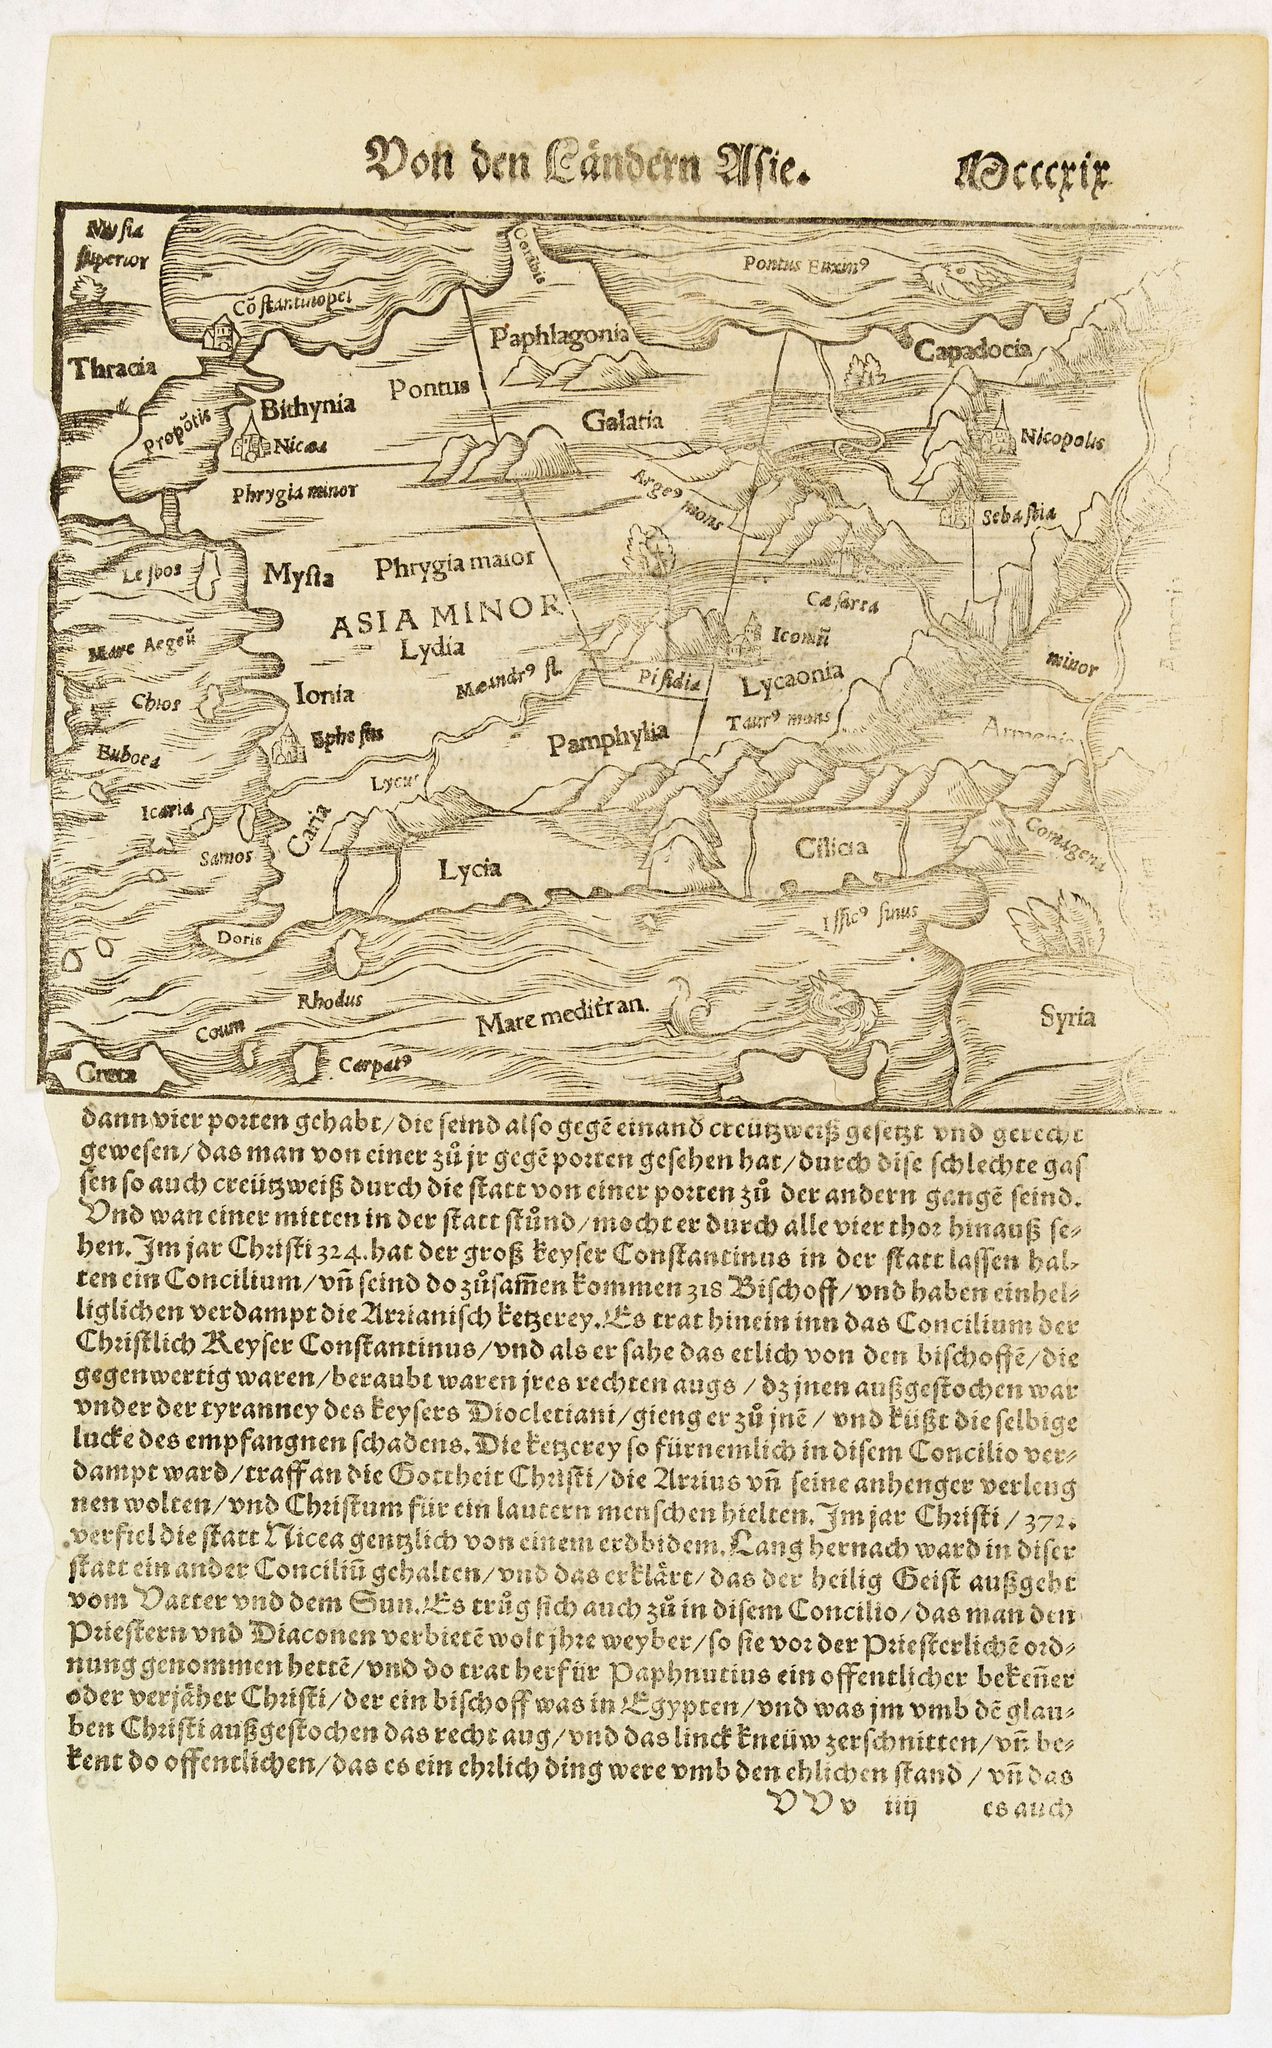 Von den Ländern Asie. Mcccxix
Mysia
superior
Cōstantinopel
Corābis
Pontus Euxinꝰ
Thracia
Propōtis
Bithynia
Nicæa
Pontus
Paphlagonia
Galatia
Capadocia
Nicopolis
Phrygia minor
Argeꝰ mons
Sebastia
Lesbos
Mysia
Phrygia maior
ASIA MINOR
Lydia
Cæsarea
Iconiū
Mare Aegeū
Chios
Ionia
Mæandrꝰ fl.
Pisidia
Lycaonia
minor
Armenia
Euboea
Ephesus
Pamphylia
Taurꝰ mons
Icaria
Lycus
Samos
Caria
Lycia
Cilicia
Comagena
Doris
Issicꝰ sinus
Rhodus
Coum
Mare mediterran.
Syria
Creta
Carpatꝰ
dann vier porten gehabt/die seind also gegē einand creützweiß gesetzt vnd gerecht
gewesen/das man von einer zů jr gegē porten gesehen hat/durch dise schlechte gas
sen so auch creützweiß durch die statt von einer porten zů der andern gangē seind.
Vnd wan einer mitten in der statt stůnd/mocht er durch alle vier thor hinauß se-
hen. Im jar Christi 324. hat der groß keyser Constantinus in der statt lassen hal-
ten ein Concilium/vñ seind do zůsam̄en kommen 318 Bischoff/vnd haben einhel-
liglichen verdampt die Arrianisch ketzerey. Es trat hinein inn das Concilium der
Christlich Keyser Constantinus/vnd als er sahe das etlich von den bischoffē/die
gegenwertig waren/beraubt waren jres rechten augs/dz jnen außgestochen war
vnder der tyranney des keysers Diocletiani/gieng er zů jnē/vnd küßt die selbige
lucke des empfangnen schadens. Die ketzerey so fürnemlich in disem Concilio ver-
dampt ward/traff an die Gottheit Christi/die Arrius vñ seine anhenger verleug
nen wolten/vnd Christum für ein lautern menschen hielten. Im jar Christi/372.
verfiel die statt Nicea gentzlich von einem erdbidem. Lang hernach ward in diser
statt ein ander Conciliū gehalten/vnd das erklärt/das der heilig Geist außgeht
vom Vatter vnd dem Sun. Es trůg sich auch zů in disem Concilio/das man den
Priestern vnd Diaconen verbietē wolt jhre weyber/so sie vor der Priesterlichē ord-
nung genommen hettē/vnd do trat herfür Paphnutius ein offentlicher bekeñer
oder verjäher Christi/der ein bischoff was in Egypten/vnd was jm vmb dē glau-
ben Christi außgestochen das recht aug/vnd das linck kneüw zerschnitten/vñ be-
kent do offentlichen/das es ein ehrlich ding were vmb den ehlichen stand/vñ das
VVv iiij es auch